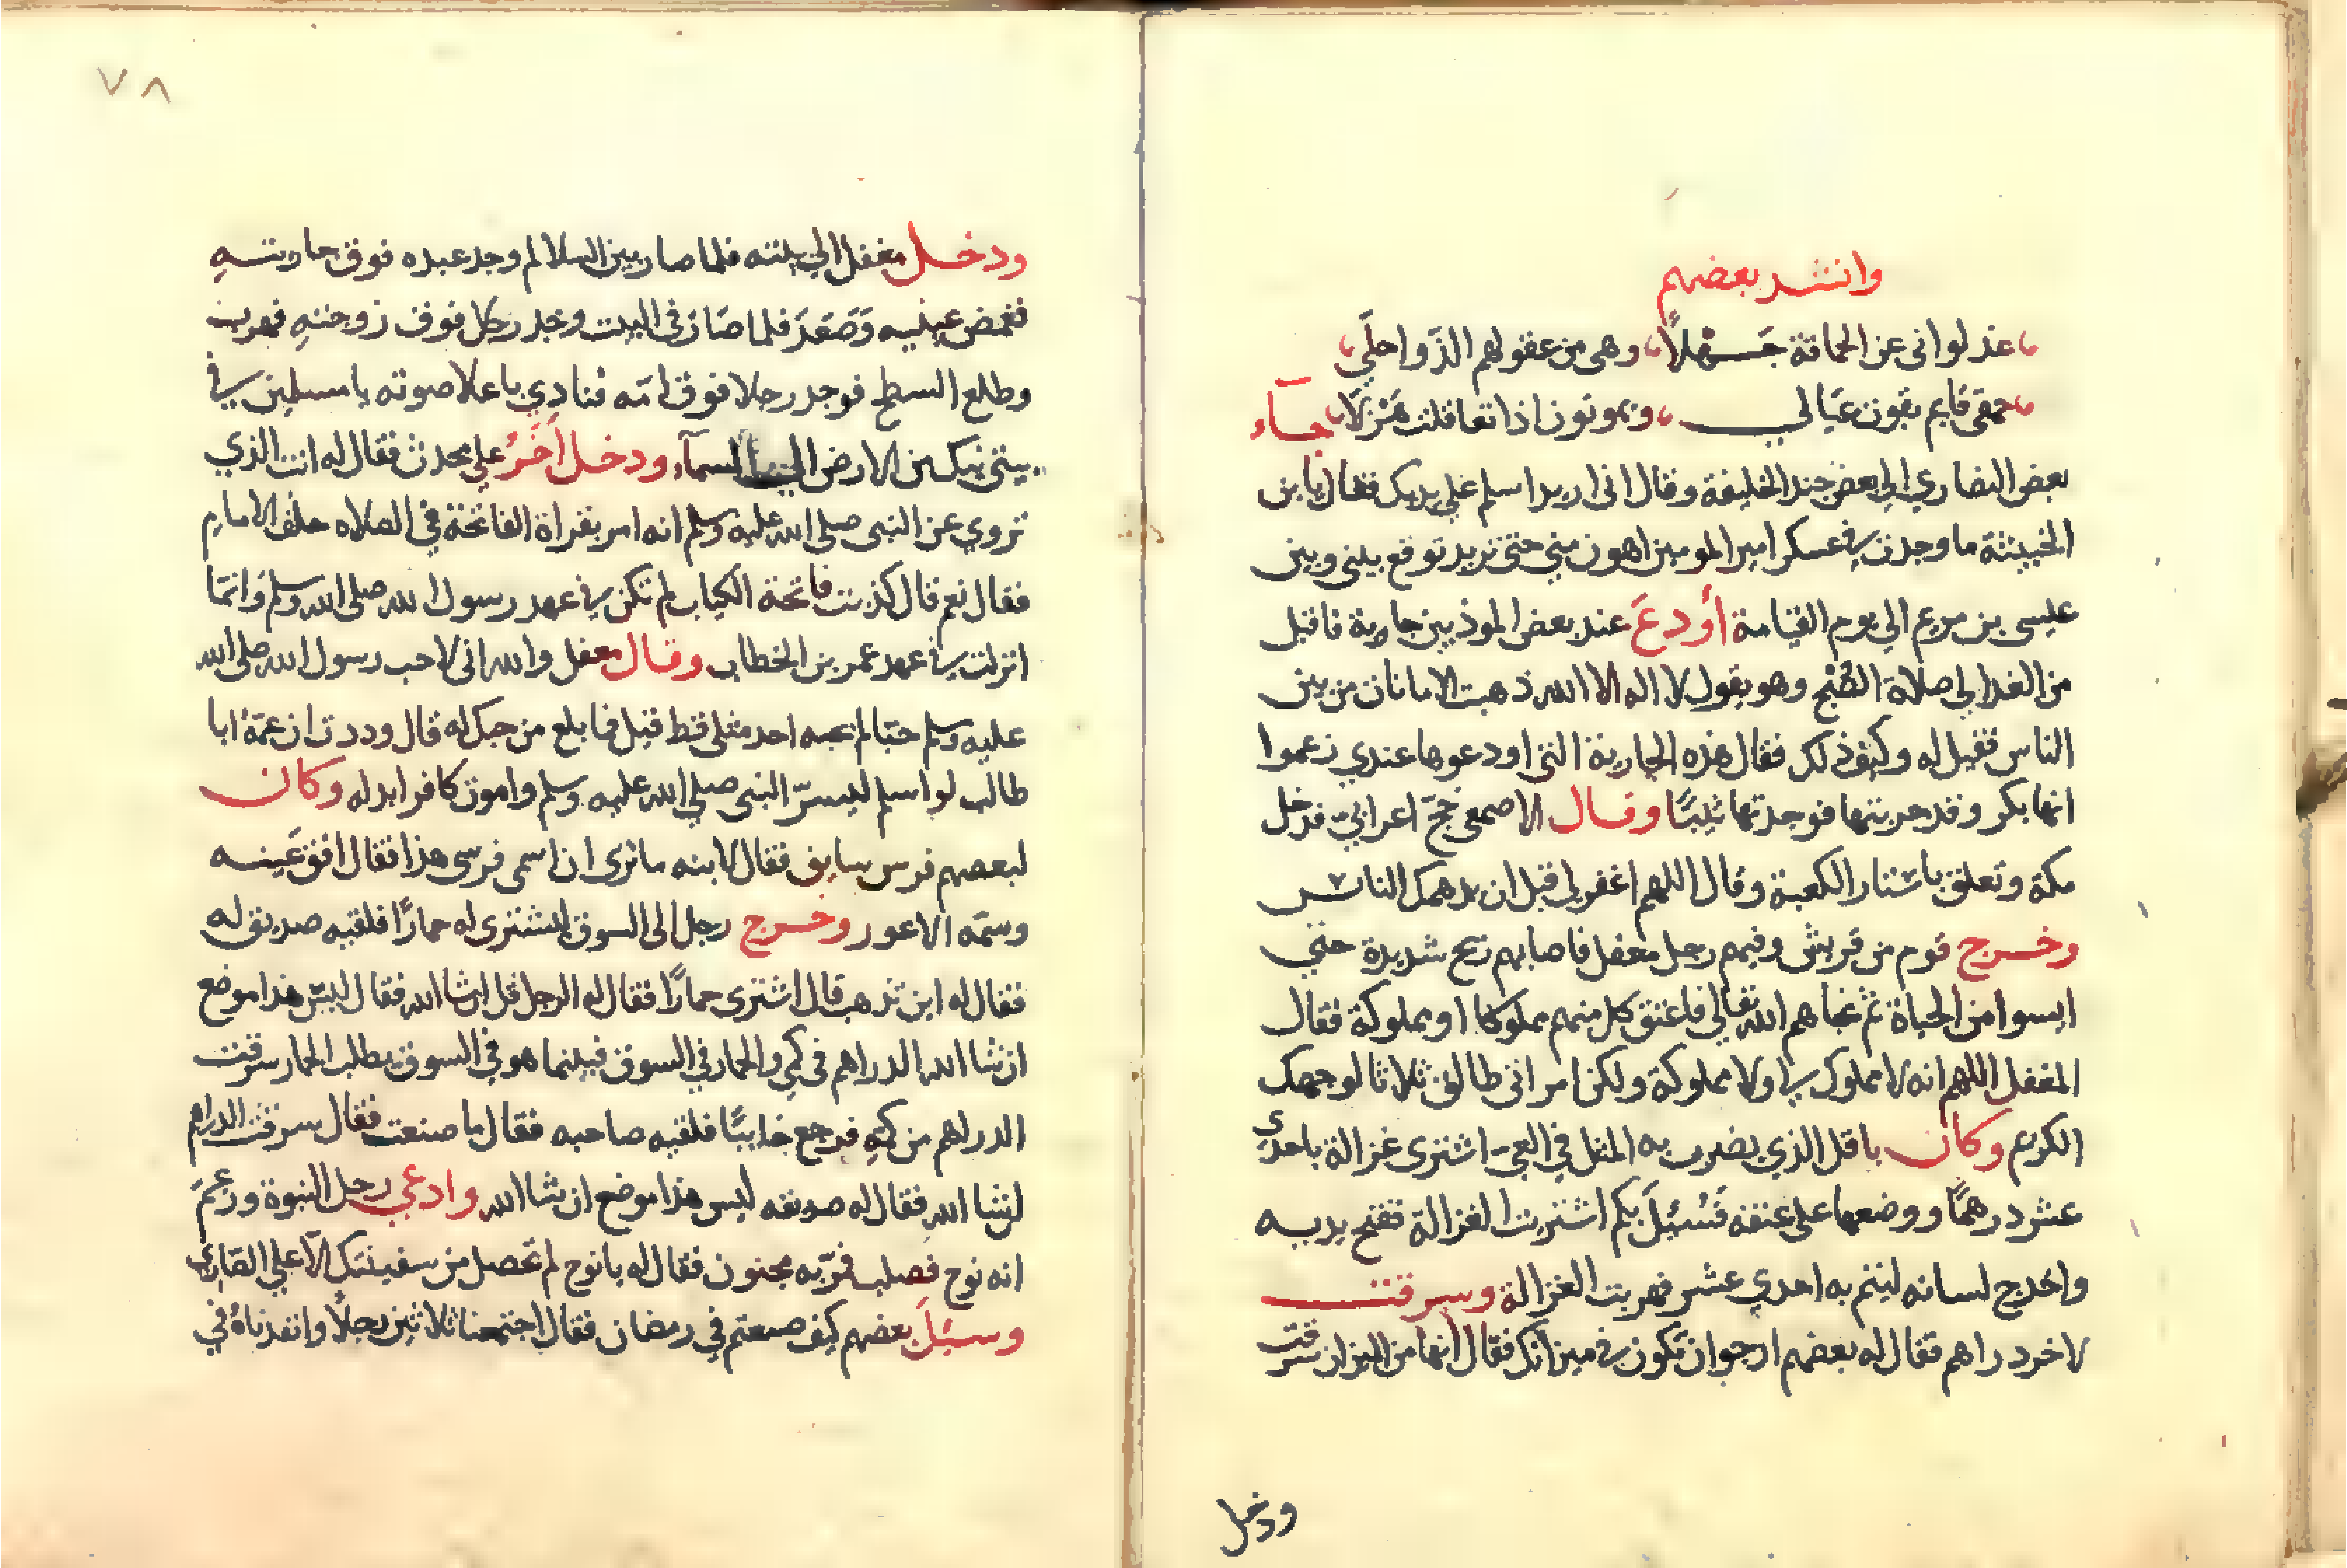 وانشد بعضهم
عذلوانى عن الحماقة جهلا وهى من عقولهم الذ واحلى
حمقى قايم بقوت عيالي ويموتون اذا تعاقلت هزلا جاء
بعض النصاري الى بعض جند الخليفة وقال انى اريد اسلم علي يديك فقال يا بن
الخبيثة ما وجدت في عسكر امير المومنين اهون مني حتى تريد توقع بيني وبين
عيسى بن مريم الي يوم القيامة أودع عند بعض الموذنين جارية فاقبل
من الغد الي صلاة الصبح وهو يقول لا اله الا الله ذهبت الامانات من بين
الناس فقيل له وكيف ذلك فقال هذه الجارية التى اودعوها عندي زعموا
انها بكر وقد جربتها فوجدتها ثيبا وقال الاصمعى حج اعرابي فدخل
مكة وتعلق باستار الكعبة وقال اللهم اغفر لى قبل ان يدهمك الناس
وخرج قوم من قريش وفيهم رجل مغفل فاصابهم ريح شديدة حتي
ايسوا من الحياة ثم نجاهم الله تعالى فاعتق كل منهم مملوكا او مملوكة فقال
المغفل اللهم انه لا مملوك لي ولا مملوكة ولكن امراتى طالق ثلاثا لوجهك
الكريم وكان باقل الذي يضرب به المثل في العي اشترى غزالة باحدي
عشر درهما ووضعها على عنقه فسئل بكم اشتريت الغزالة ففتح يديه
واخرج لسانه ليتم به احدي عشر فهربت الغزالة وسرقت
لاخر دراهم فقال له بعضهم ارجوا ان تكون في ميزانك فقال انها من الميزان سرقت
ودخل
٧٨
ودخل مغفل الي بيته فلما صار بين السلالم وجد عبده فوق جاريته
فغمض عينيه وصعد فلما صار في البيت وجد رجل فوق زوجته فهرب
وطلع السطح فوجد رجلا فوق امه فنادي باعلا صوته يا مسلمين في
بيتى نيك من الارض الي السماء ودخل اخر علي محدث فقال له انت الذي
تروي عن النبى صلى الله عليه وسلم انه امر بقراة الفاتحة في الصلاه خلف الامام
فقال نعم قال كذبت فاتحة الكتاب لم تكن في عهد رسول الله صلى الله وسلم وانما
انزلت في عهد عمر بن الخطاب وقال مغفل والله انى لاحب رسول الله صلى الله
عليه وسلم حبا لم يحبه احد مثلى قط قيل فما بلغ من حبك له قال وددت ان عمه ابا
طالب لو اسلم ليسر النبى صلي الله عليه وسلم واموت كافر ابدله وكان
لبعضهم فرس سابق فقال لابنه ما ترى ان اسمى فرسى هذا فقال افق عينه
وسمه الاعور وخرج رجل الى السوق ليشترى له حمارا فلقيه صديق له
فقال له اين تذهب قال اشترى حمارا فقال له الرجل قل ان شا الله فقال ليس هذا موضع
ان شا الله الدراهم فى كمي والحمار في السوق فبينما هو في السوق يطلب الحمار سرقت
الدراهم من كمه فرجع خايبا فلقيه صاحبه فقال ما صنعت فقال سرقت الدراهم
ان شا الله فقال له صديقه ليس هذا موضع ان شا الله وادعي رجل النبوة وزعم
انه نوح فصلب فمر به مجنون فقال له يا نوح لم تحصل من سفينتك الا علي الصاري
وسئل بعضهم كيف صنعتم في رمضان فقال اجتمعنا ثلاثين رجلا وانفدناه في